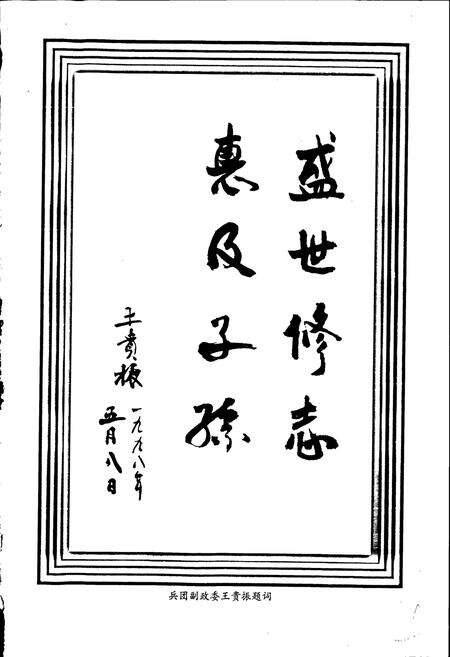 盛世修志
惠及子孫
王貴振
一九九八年
五月八日
兵团副政委王贵振题词